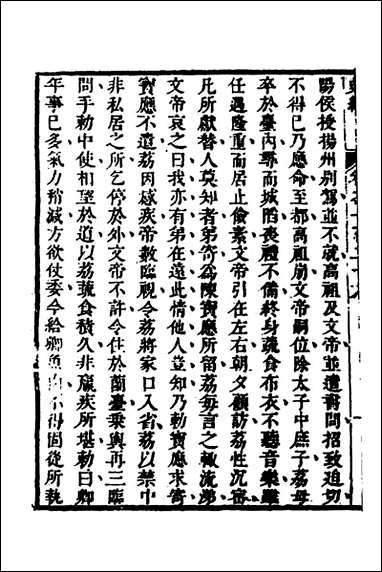 陽侯授揚州別駕並不就高祖及文帝並遺書問招致迫切
不得已乃應命至都高祖崩文帝嗣位除太子中庶子荔母
卒於臺內尋而城陷喪禮不備終身蔬食布衣不聽音樂雖
任遇隆重而居止儉素文帝引在左右朝夕顧訪荔性沉審
凡所獻替人莫知者弟寄爲陳寶應所留荔每言之輒流涕
文帝哀之曰我亦有弟在遠此情他人豈知乃勅寶應求寄
寶應不遣荔因感疾帝數臨視令荔將家口入省荔以禁中
非私居之所乞停於外文帝不許令住於蘭臺乗輿再三臨
問手勅中使相望於道以荔蔬食積久非羸疾所堪勅曰卿
年事已多氣力稍減方欲仗委今給卿魚肉不得固從所執